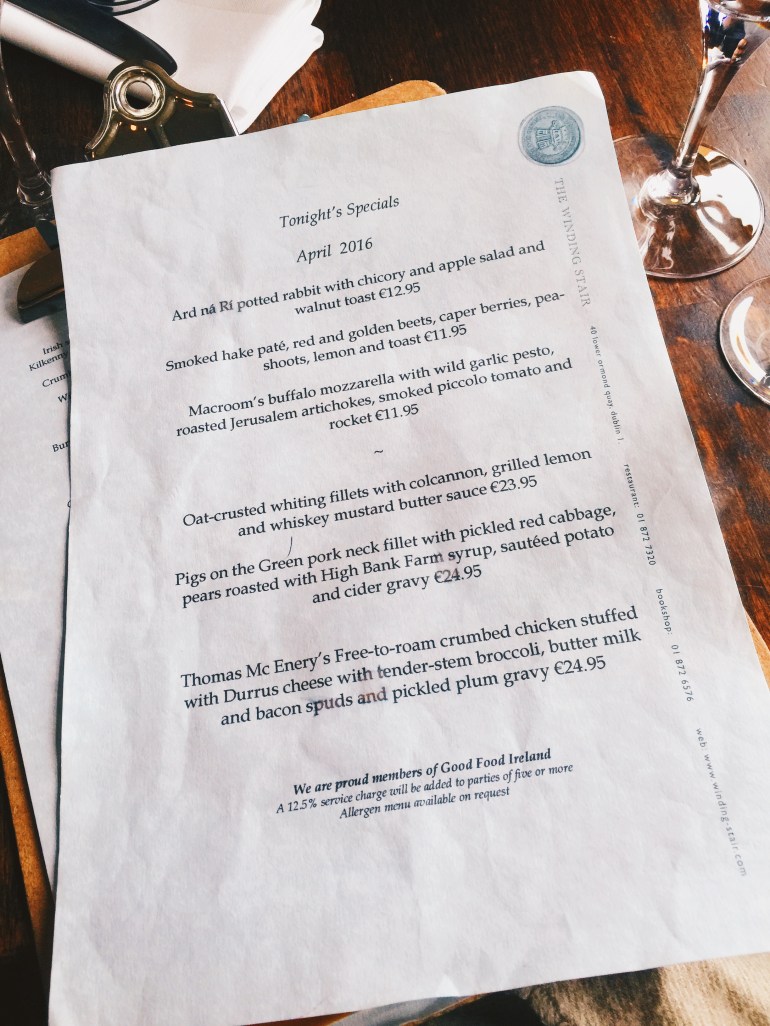 Tonight's Specials
April 2016
Ard ná Rí potted rabbit with chicory and apple salad and
walnut toast €12.95
Smoked hake paté, red and golden beets, caper berries, pea-
shoots, lemon and toast €11.95
Macroom's buffalo mozzarella with wild garlic pesto,
roasted Jerusalem artichokes, smoked piccolo tomato and
rocket €11.95
~
Oat-crusted whiting fillets with colcannon, grilled lemon
and whiskey mustard butter sauce €23.95
Pigs on the Green pork neck fillet with pickled red cabbage,
pears roasted with High Bank Farm syrup, sautéed potato
and cider gravy €24.95
Thomas Mc Enery's Free-to-roam crumbed chicken stuffed
with Durrus cheese with tender-stem broccoli, butter milk
and bacon spuds and pickled plum gravy €24.95
We are proud members of Good Food Ireland
A 12.5% service charge will be added to parties of five or more
Allergen menu available on request
THE WINDING STAIR
40 lower ormond quay, dublin 1.
restaurant: 01 872 7320
bookshop: 01 872 6576
web: www.winding-stair.com
Irish
Kilkenny